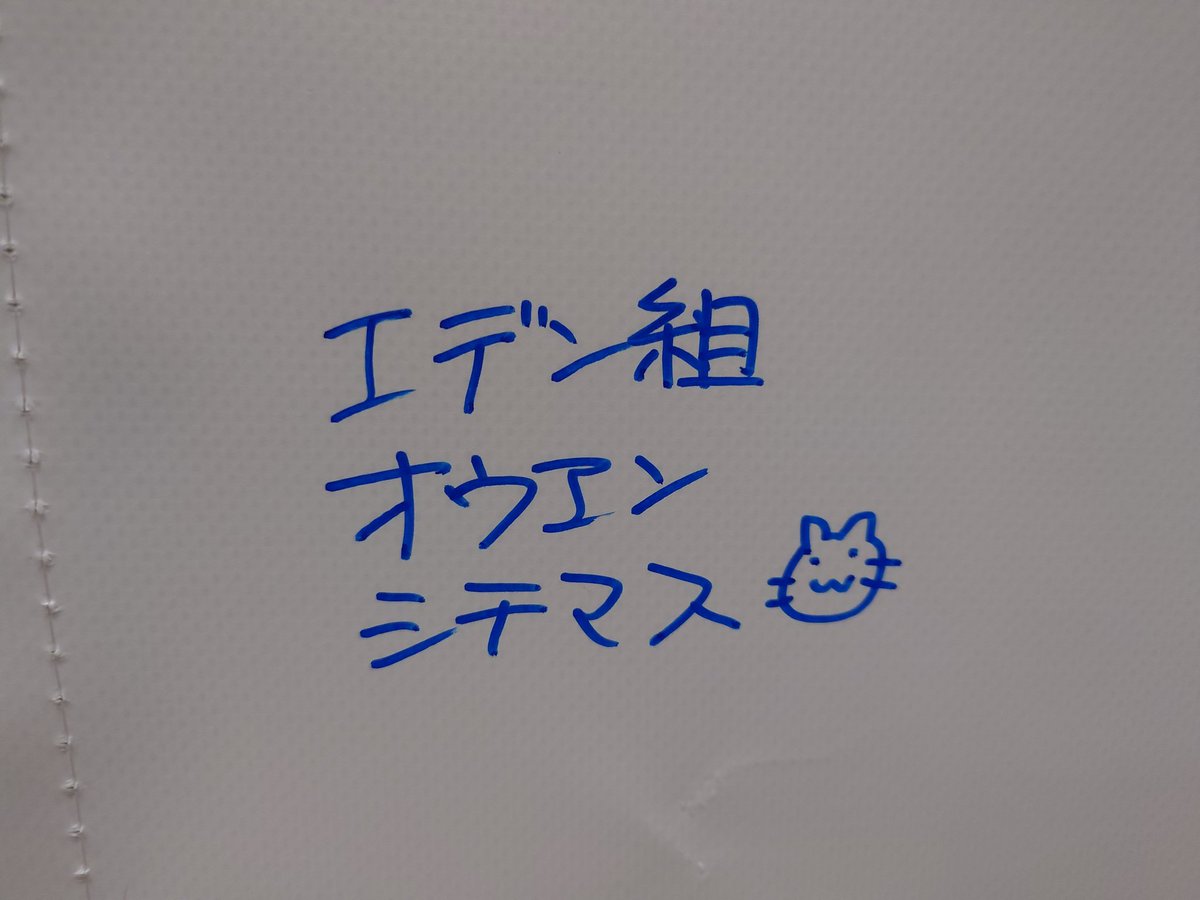 エデン組
オウエン
シテマス